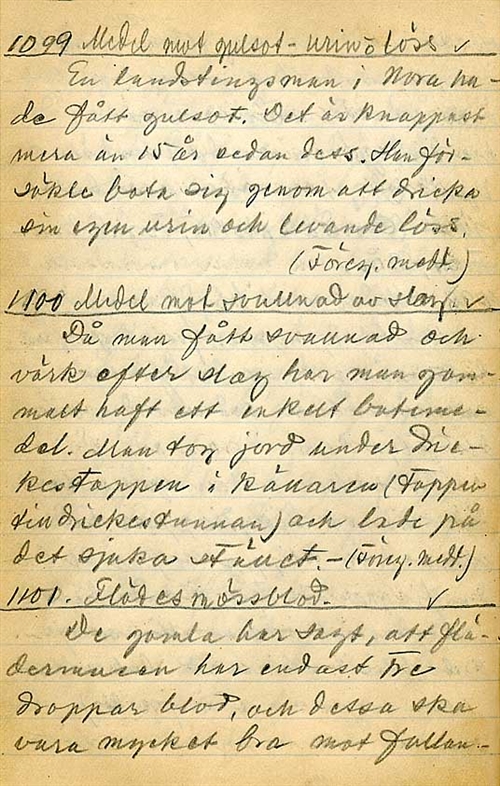 1099 Medel mot gulsot - urin o löss ✓
En landstingsman i Nora ha-
de fått gulsot. Det är knappast
mera än 15 år sedan dess. Han för-
sökte bota sig genom att dricka
sin egen urin och levande löss.
(Föreg. medd.)
1100 Medel mot svullnad av slag. ✓
Då man fått svullnad och
värk efter slag har man gam-
malt haft ett enkelt boteme-
del. Man tog jord under dric-
kestappen i källaren (Tappen
till drickestunnan) och lade på
det sjuka stället. - (Föreg. medd.)
1101. Flädesmössblod. ✓
De gamla har sagt, att flä-
dermusen har endast tre
droppar blod, och dessa ska
vara mycket bra mot fallan-